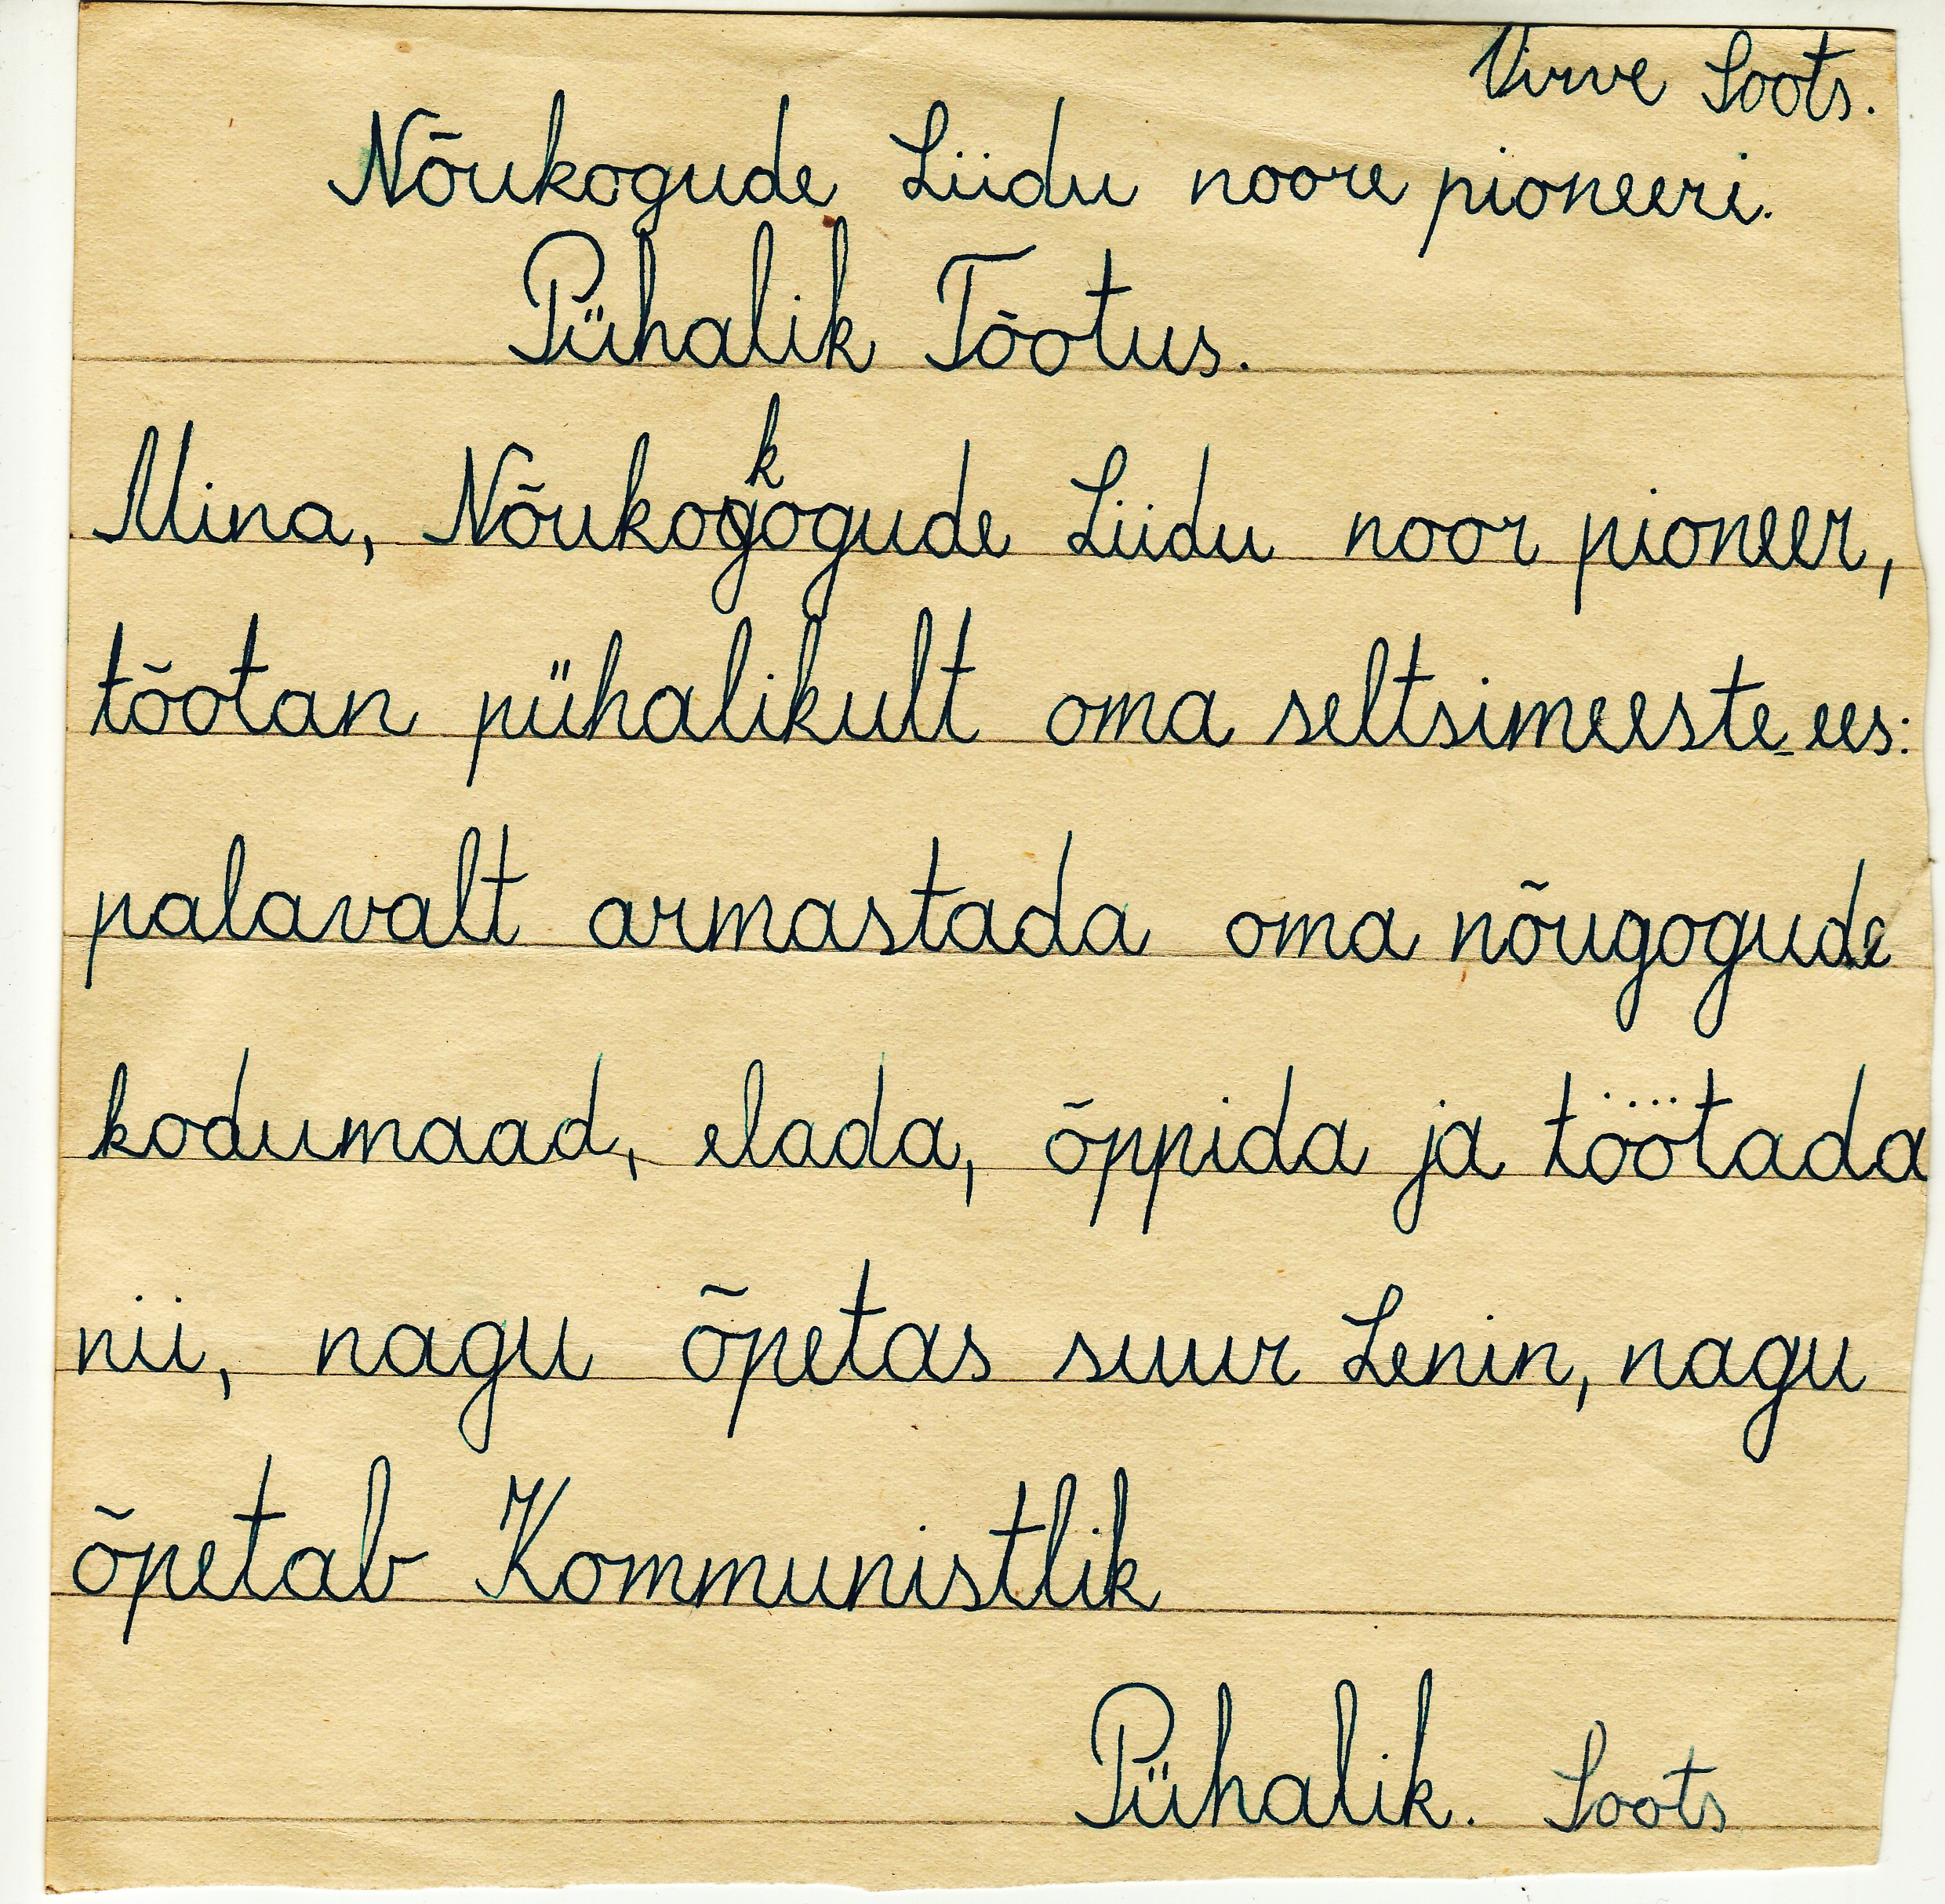 Virve Soots.
Nõukogude Liidu noore pioneeri.
Pühalik Tõotus.
k
Mina, Nõukogogude Liidu noor pioneer,
tõotan pühalikult oma seltsimeeste_ees:
palavalt armastada oma nõugogude
kodumaad, elada, õppida ja töötada
nii, nagu õpetas suur Lenin, nagu
õpetab Kommunistlik
Pühalik. Soots